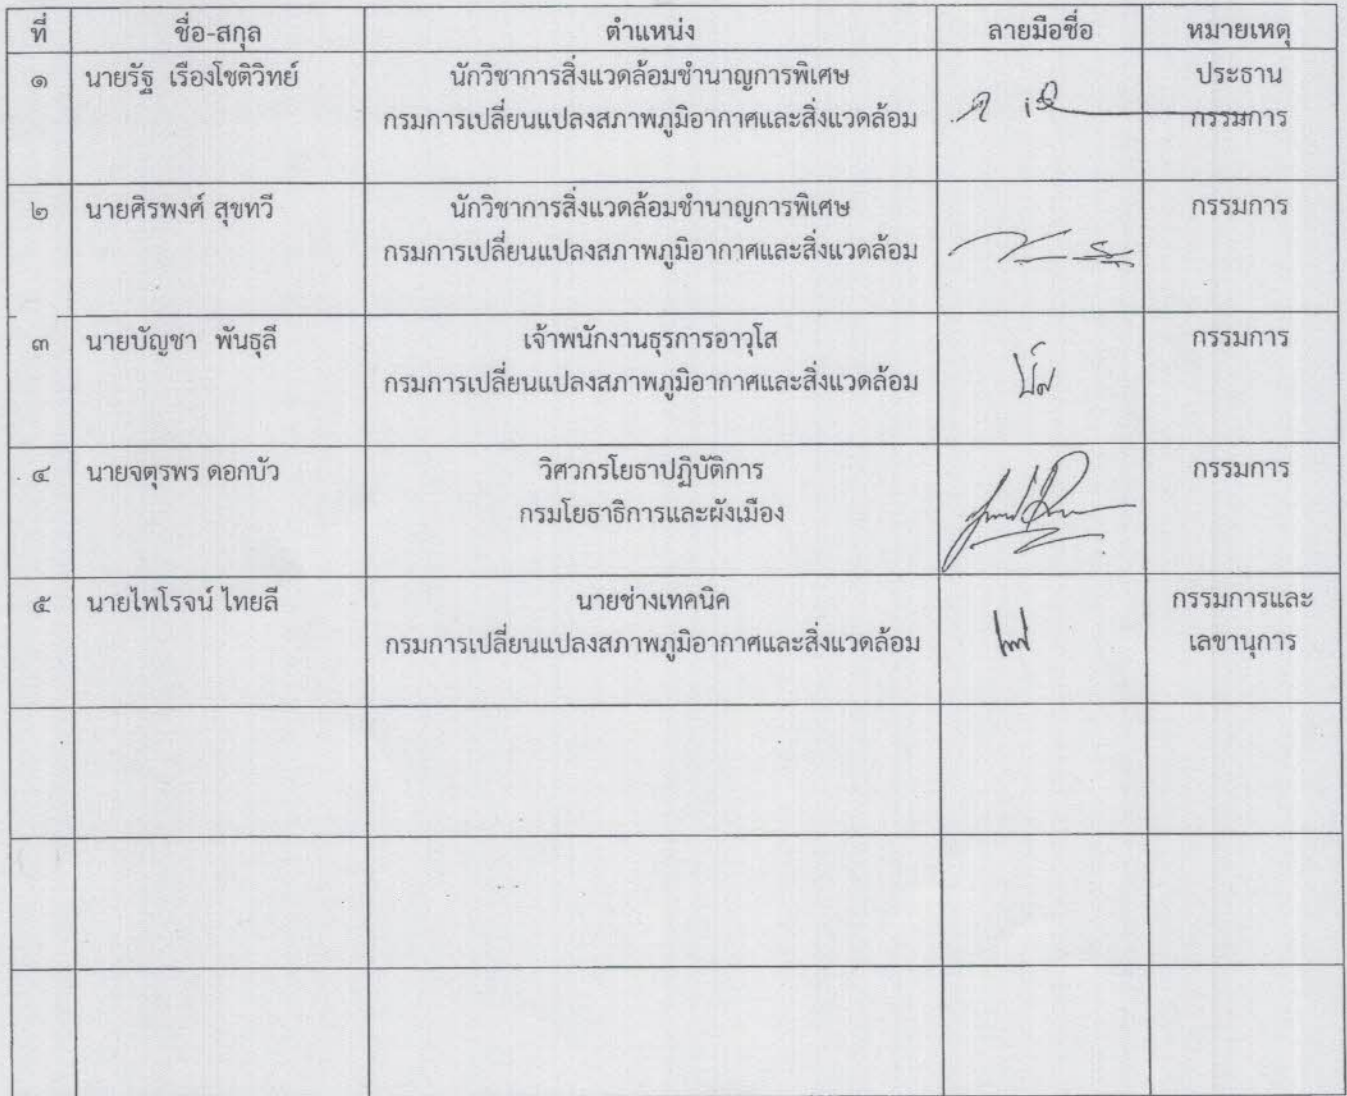 ที่ ชื่อ-สกุล ตำแหน่ง ลายมือชื่อ หมายเหตุ
๑ นายรัฐ เรืองโชติวิทย์ นักวิชาการสิ่งแวดล้อมชำนาญการพิเศษ ประธาน
กรมการเปลี่ยนแปลงสภาพภูมิอากาศและสิ่งแวดล้อม กรรมการ
๒ นายศิรพงศ์ สุขทวี นักวิชาการสิ่งแวดล้อมชำนาญการพิเศษ กรรมการ
กรมการเปลี่ยนแปลงสภาพภูมิอากาศและสิ่งแวดล้อม
๓ นายบัญชา พันธุลี เจ้าพนักงานธุรการอาวุโส กรรมการ
กรมการเปลี่ยนแปลงสภาพภูมิอากาศและสิ่งแวดล้อม
๔ นายจตุรพร ดอกบัว วิศวกรโยธาปฏิบัติการ กรรมการ
กรมโยธาธิการและผังเมือง
๕ นายไพโรจน์ ไทยลี นายช่างเทคนิค กรรมการและ
กรมการเปลี่ยนแปลงสภาพภูมิอากาศและสิ่งแวดล้อม เลขานุการ